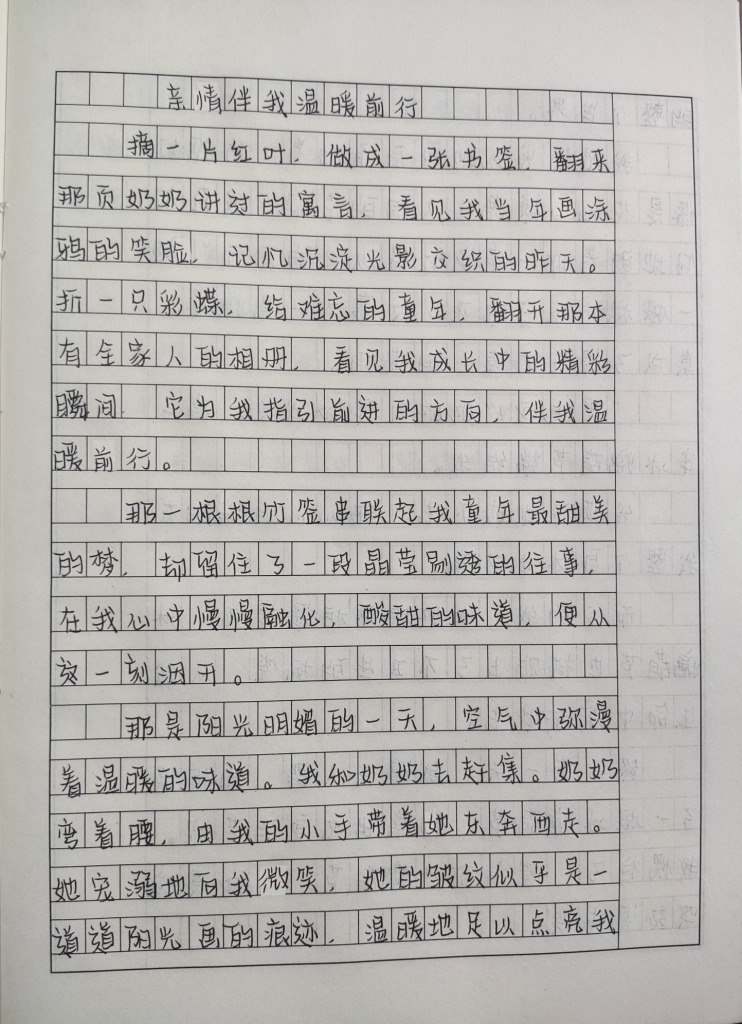 亲情伴我温暖前行
摘一片红叶，做成一张书签，翻来
那页奶奶讲过的寓言，看见我当年画涂
鸦的笑脸，记忆沉淀光影交织的昨天。
折一只彩蝶，给难忘的童年，翻开那本
有全家人的相册，看见我成长中的精彩
瞬间，它为我指引前进的方向，伴我温
暖前行。
那一根根竹签串联起我童年最甜美
的梦，却留住了一段晶莹剔透的往事，
在我心中慢慢融化，酸甜的味道，便从
这一刻洇开。
那是阳光明媚的一天，空气中弥漫
着温暖的味道。我和奶奶去赶集。奶奶
弯着腰，由我的小手带着她东奔西走。
她宠溺地向我微笑，她的皱纹似乎是一
道道阳光画的痕迹，温暖地足以点亮我